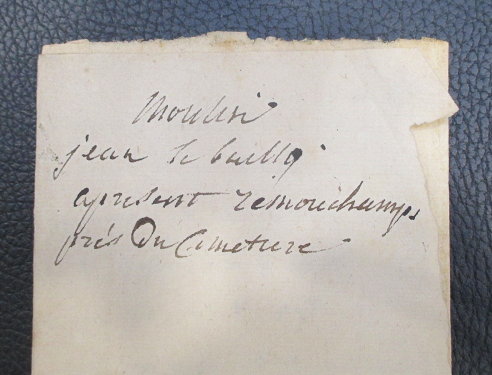 Moulin
jean le bailly
apresent remouchamps
près du Cimetiere